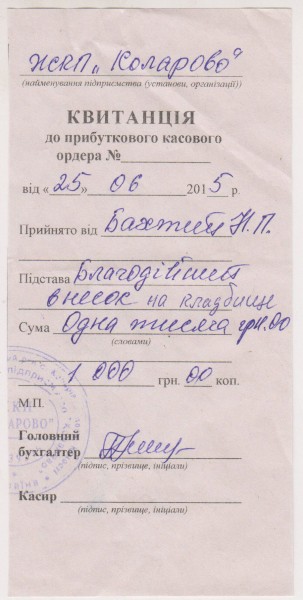 ЖКП „Коларово"
(найменування підприємства (установи, організації))
КВИТАНЦІЯ
до прибуткового касового
ордера №
від «25» 06 2015 р.
Прийнято від Н.П.
Підстава Благодійний
внесок на кладбище
Сума Одна тисяча грн. 00
(словами)
1 000 грн. 00 коп.
М.П.
Головний
бухгалтер
(підпис, прізвище, ініціали)
Касир
(підпис, прізвище, ініціали)